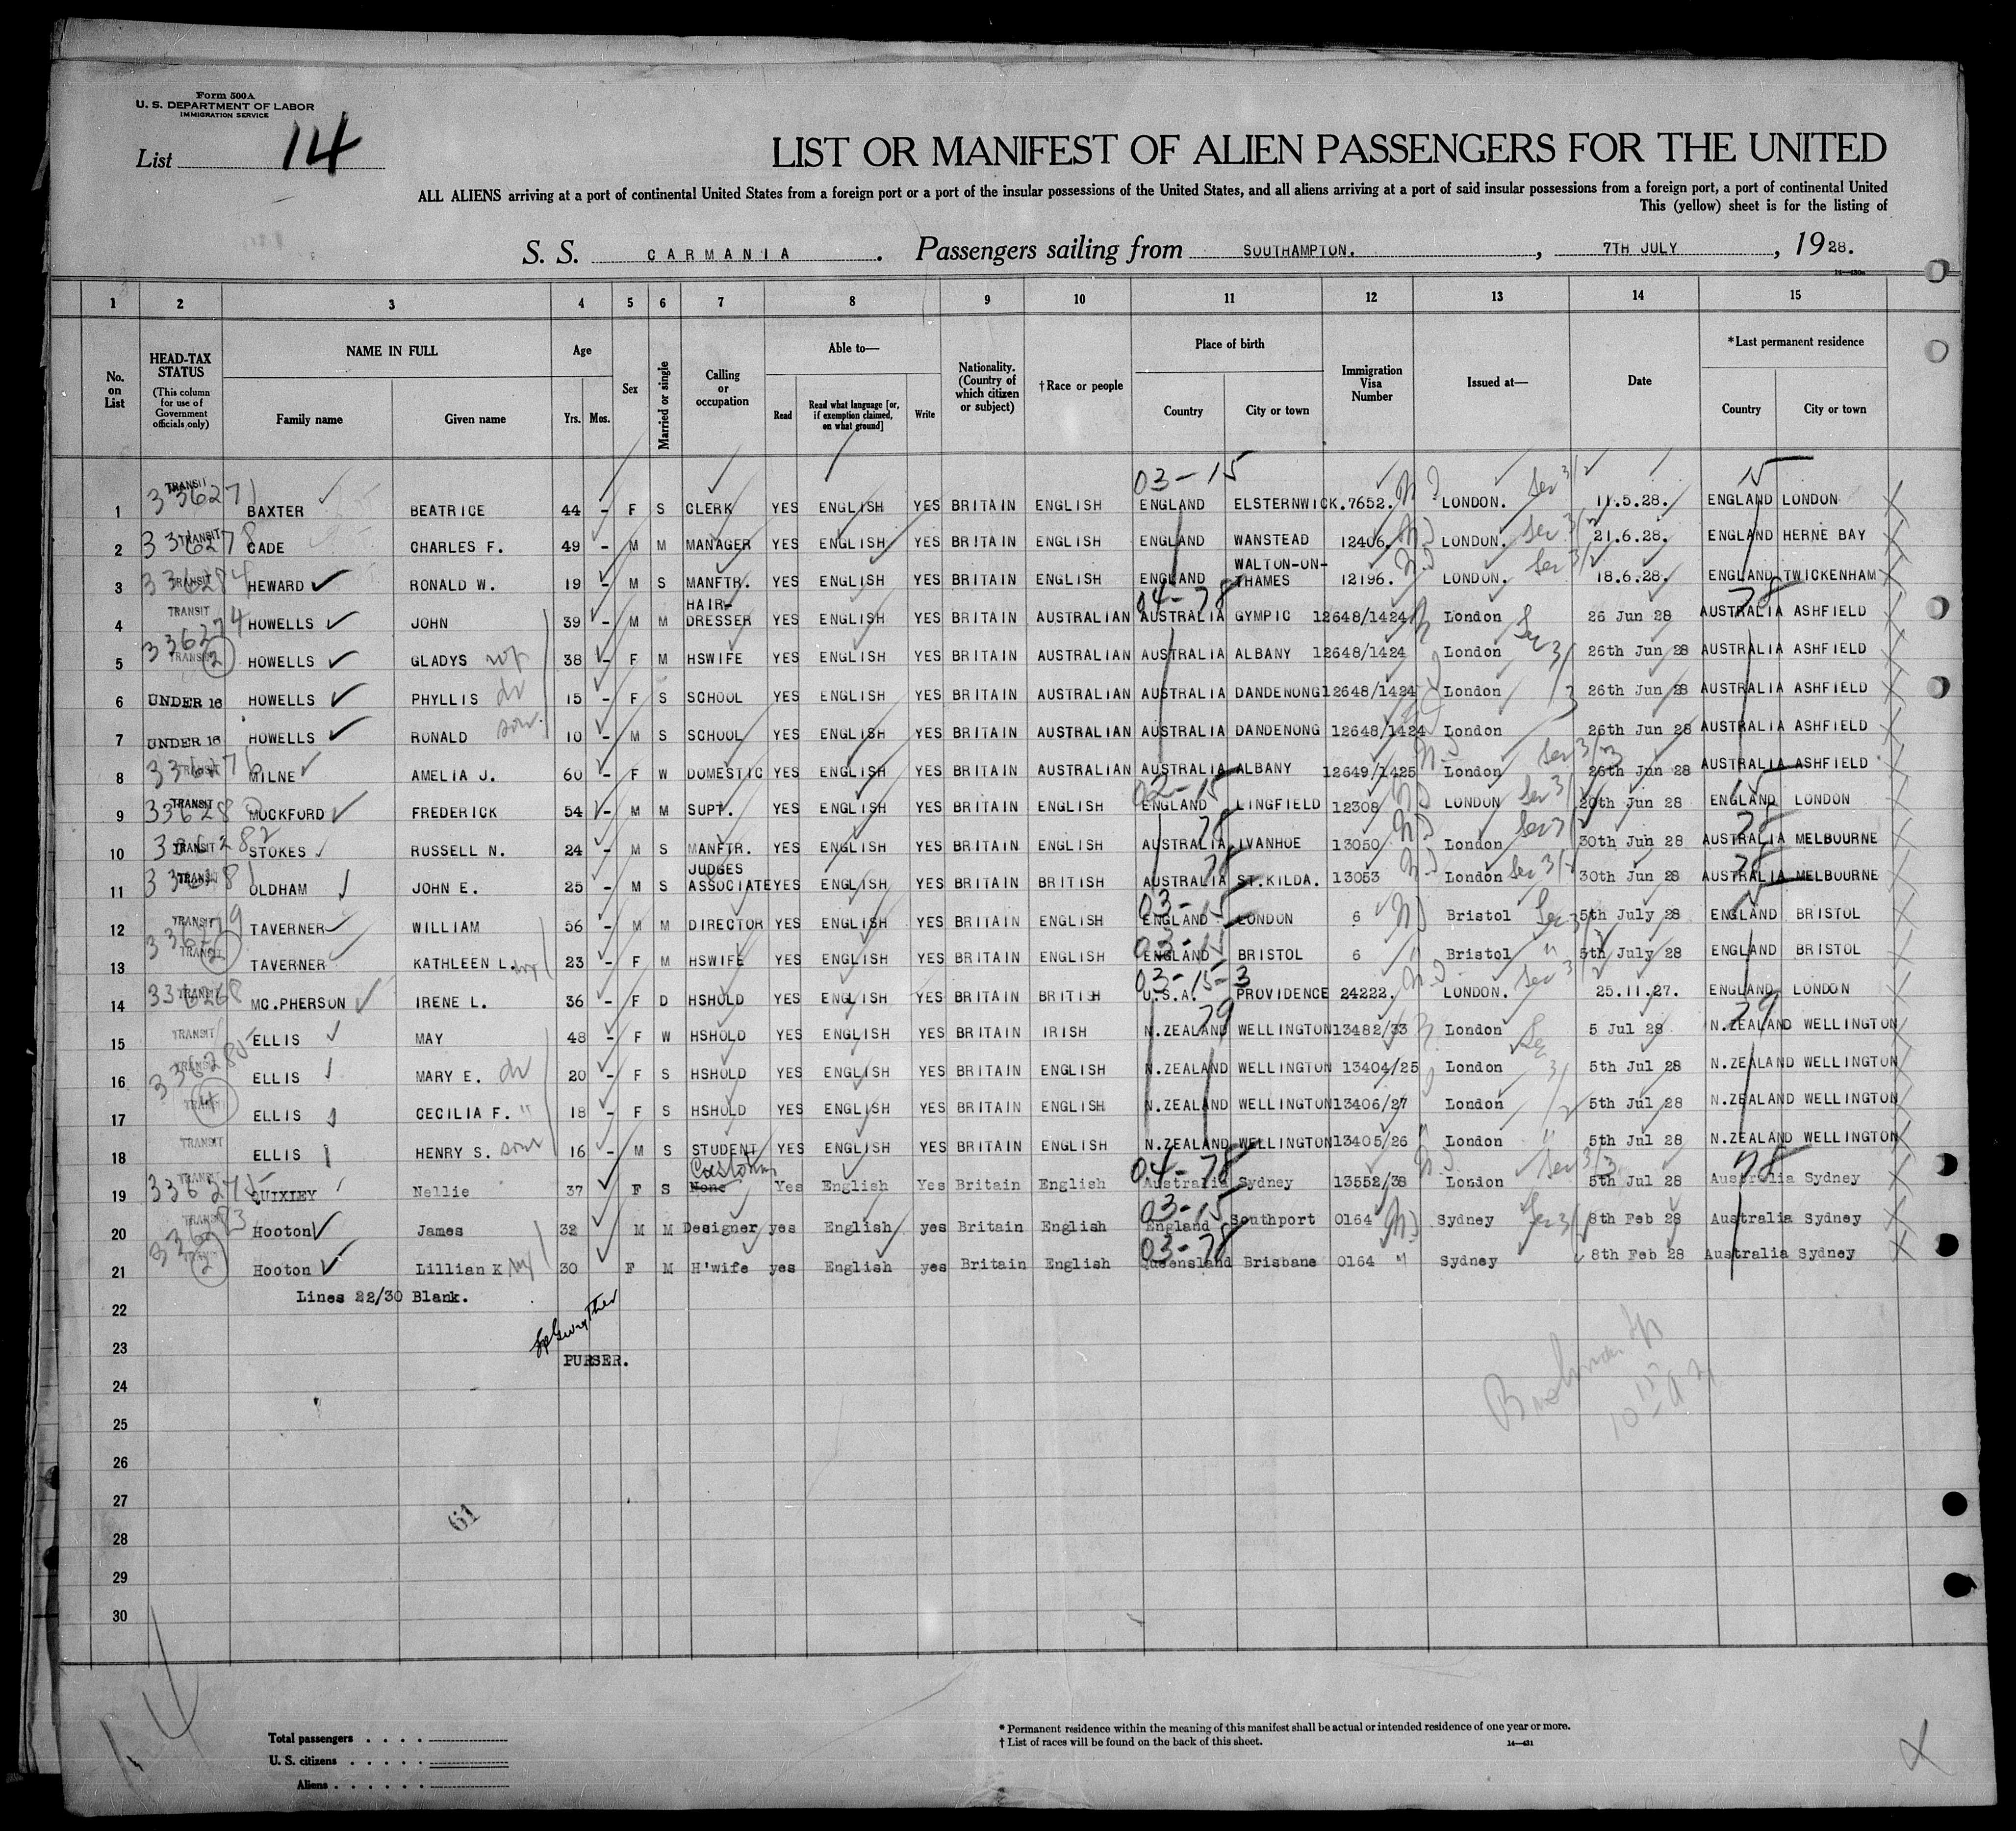 Form 500A
U. S. DEPARTMENT OF LABOR
IMMIGRATION SERVICE
List 14
LIST OR MANIFEST OF ALIEN PASSENGERS FOR THE UNITED
ALL ALIENS arriving at a port of continental United States from a foreign port or a port of the insular possessions of the United States, and all aliens arriving at a port of said insular possessions from a foreign port, a port of continental United
This (yellow) sheet is for the listing of
S. S. CARMANIA . Passengers sailing from SOUTHAMPTON. , 7TH JULY , 1928.
1 2 3 4 5 6 7 8 9 10 11 12 13 14 15
No. on List
HEAD-TAX STATUS (This column for use of Government officials only)
NAME IN FULL
Family name Given name
Age
Yrs. Mos.
Sex
Married or single
Calling or occupation
Able to—
Read Read what language [or, if exemption claimed, on what ground] Write
Nationality. (Country of which citizen or subject)
†Race or people
Place of birth
Country City or town
Immigration Visa Number
Issued at—
Date
*Last permanent residence
Country City or town
03-15 15
1 TRANSIT 336271 BAXTER BEATRICE 44 - F S CLERK YES ENGLISH YES BRITAIN ENGLISH ENGLAND ELSTERNWICK. 7652. LONDON. 11.5.28. ENGLAND LONDON
2 TRANSIT 336278 CADE CHARLES F. 49 - M M MANAGER YES ENGLISH YES BRITAIN ENGLISH ENGLAND WANSTEAD 12406. LONDON. 21.6.28. ENGLAND HERNE BAY
3 TRANSIT 336284 HEWARD RONALD W. 19 - M S MANFTR. YES ENGLISH YES BRITAIN ENGLISH ENGLAND WALTON-ON-THAMES 12196. LONDON. 18.6.28. ENGLAND TWICKENHAM
04-78 78
4 TRANSIT 336274 HOWELLS JOHN 39 - M M HAIR-DRESSER YES ENGLISH YES BRITAIN AUSTRALIAN AUSTRALIA GYMPIC 12648/1424 London 26 Jun 28 AUSTRALIA ASHFIELD
5 TRANSIT 2 HOWELLS GLADYS wf 38 - F M HSWIFE YES ENGLISH YES BRITAIN AUSTRALIAN AUSTRALIA ALBANY 12648/1424 London 26th Jun 28 AUSTRALIA ASHFIELD
6 UNDER 16 HOWELLS PHYLLIS dr 15 - F S SCHOOL YES ENGLISH YES BRITAIN AUSTRALIAN AUSTRALIA DANDENONG 12648/1424 London 26th Jun 28 AUSTRALIA ASHFIELD
7 UNDER 16 HOWELLS RONALD son 10 - M S SCHOOL YES ENGLISH YES BRITAIN AUSTRALIAN AUSTRALIA DANDENONG 12648/1424 London 26th Jun 28 AUSTRALIA ASHFIELD
8 TRANSIT 336276 MILNE AMELIA J. 60 - F W DOMESTIC YES ENGLISH YES BRITAIN AUSTRALIAN AUSTRALIA ALBANY 12649/1425 London 26th Jun 28 AUSTRALIA ASHFIELD
02-15 15
9 TRANSIT MOCKFORD FREDERICK 54 - M M SUPT. YES ENGLISH YES BRITAIN ENGLISH ENGLAND LINGFIELD 12308 LONDON 20th Jun 28 ENGLAND LONDON
78 78
10 TRANSIT 336282 STOKES RUSSELL N. 24 - M S MANFTR. YES ENGLISH YES BRITAIN ENGLISH AUSTRALIA IVANHOE 13050 London 30th Jun 28 AUSTRALIA MELBOURNE
78 78
11 TRANSIT 336281 OLDHAM JOHN E. 25 - M S JUDGES ASSOCIATE YES ENGLISH YES BRITAIN BRITISH AUSTRALIA ST.KILDA. 13053 London 30th Jun 28 AUSTRALIA MELBOURNE
03-15 15
12 TRANSIT 336279 TAVERNER WILLIAM 56 - M M DIRECTOR YES ENGLISH YES BRITAIN ENGLISH ENGLAND LONDON 6 Bristol 5th July 28 ENGLAND BRISTOL
03-15
13 TRANSIT 2 TAVERNER KATHLEEN L. wf 23 - F M HSWIFE YES ENGLISH YES BRITAIN ENGLISH ENGLAND BRISTOL 6 " Bristol " 5th July 28 ENGLAND BRISTOL
03-15-3
14 TRANSIT 336268 MC.PHERSON IRENE L. 36 - F D HSHOLD YES ENGLISH YES BRITAIN BRITISH U.S.A. PROVIDENCE 24222. LONDON. 25.11.27. ENGLAND LONDON
79 79
15 TRANSIT ELLIS MAY 48 - F W HSHOLD YES ENGLISH YES BRITAIN IRISH N.ZEALAND WELLINGTON 13482/33 London 5 Jul 28 N.ZEALAND WELLINGTON
16 TRANSIT 336285 ELLIS MARY E. dr 20 - F S HSHOLD YES ENGLISH YES BRITAIN ENGLISH N.ZEALAND WELLINGTON 13404/25 London 5th Jul 28 N.ZEALAND WELLINGTON
17 TRANSIT 4 ELLIS CECILIA F. " 18 - F S HSHOLD YES ENGLISH YES BRITAIN ENGLISH N.ZEALAND WELLINGTON 13406/27 London 5th Jul 28 N.ZEALAND WELLINGTON
18 TRANSIT ELLIS HENRY S. son 16 - M S STUDENT YES ENGLISH YES BRITAIN ENGLISH N.ZEALAND WELLINGTON 13405/26 " London " 5th Jul 28 N.ZEALAND WELLINGTON
04-78 78
19 TRANSIT 336275 QUIXLEY Nellie 37 F S None Yes English Yes Britain English Australia Sydney 13552/38 London 5th Jul 28 Australia Sydney
03-15
20 TRANSIT 336283 Hooton James 32 M M Designer yes English yes Britain English England Southport 0164 Sydney 8th Feb 28 Australia Sydney
03-78
21 2 Hooton Lillian K wf 30 F M H'wife yes English yes Britain English Queensland Brisbane 0164 " Sydney 8th Feb 28 Australia Sydney
Lines 22/30 Blank.
22
23
PURSER.
24
25
26
27
61
28
29
30
14
Total passengers
U. S. citizens
Aliens
* Permanent residence within the meaning of this manifest shall be actual or intended residence of one year or more.
† List of races will be found on the back of this sheet.
14—431